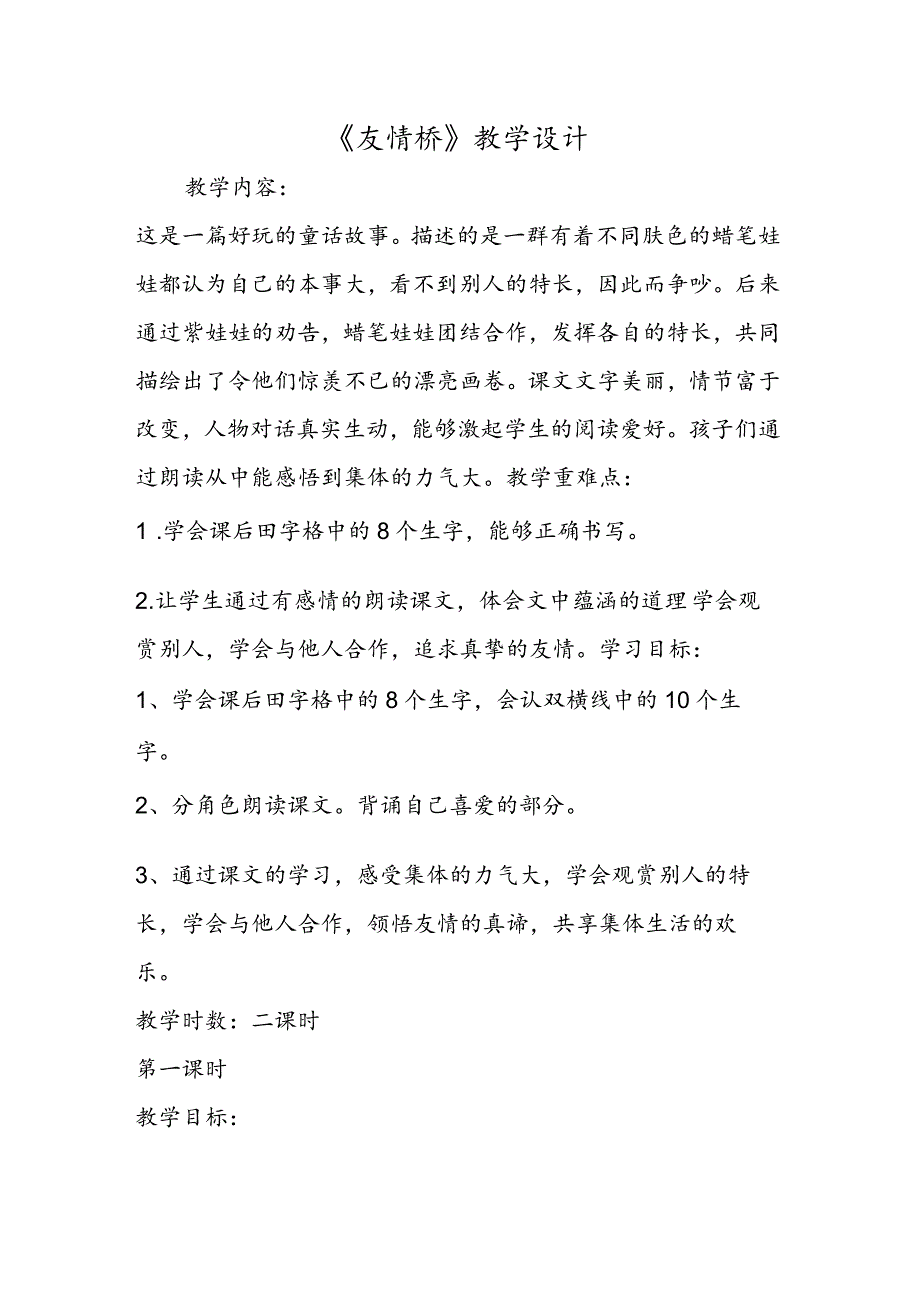 《友情桥》教学设计
教学内容：
这是一篇好玩的童话故事。描述的是一群有着不同肤色的蜡笔娃
娃都认为自己的本事大，看不到别人的特长，因此而争吵。后来
通过紫娃娃的劝告，蜡笔娃娃团结合作，发挥各自的特长，共同
描绘出了令他们惊羡不已的漂亮画卷。课文文字美丽，情节富于
改变，人物对话真实生动，能够激起学生的阅读爱好。孩子们通
过朗读从中能感悟到集体的力气大。教学重难点：
1 .学会课后田字格中的8个生字，能够正确书写。
2.让学生通过有感情的朗读课文，体会文中蕴涵的道理 学会观
赏别人，学会与他人合作，追求真挚的友情。学习目标：
1、学会课后田字格中的8个生字，会认双横线中的10个生
字。
2、分角色朗读课文。背诵自己喜爱的部分。
3、通过课文的学习，感受集体的力气大，学会观赏别人的特
长，学会与他人合作，领悟友情的真谛，共享集体生活的欢
乐。
教学时数：二课时
第一课时
教学目标：